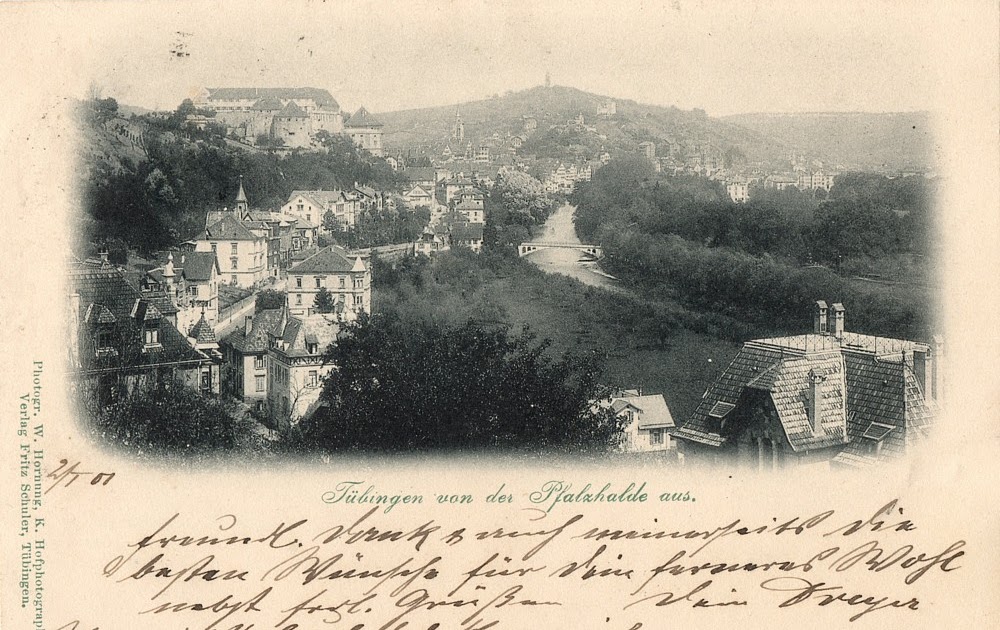 Tübingen von der Pfalzhalde aus.
Photogr. W. Hornung, K. Hofphotograph
Verlag Fritz Schuler, Tübingen.
2/1 01
freundl. Dank & auch meinerseits die
besten Wünsche für Dein ferneres Wohl
nebst frdl. Grüßen Dein Dreyer